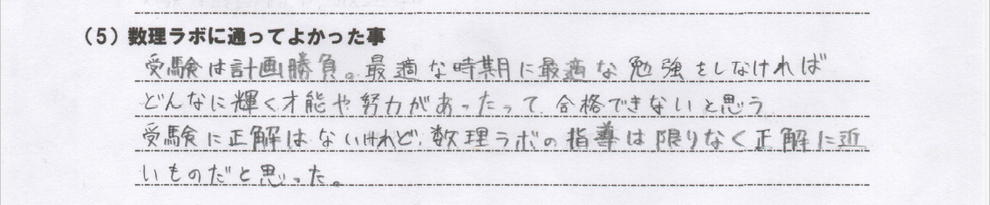 (5) 数理ラボに通ってよかった事
受験は計画勝負。最適な時期に最適な勉強をしなければ
どんなに輝く才能や努力があったって、合格できないと思う
受験に正解はないけれど、数理ラボの指導は限りなく正解に近
いものだと思った。